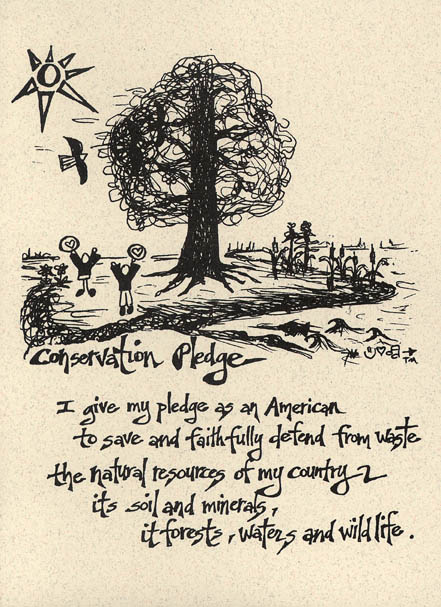 Conservation Pledge
TM
I give my pledge as an American
to save and faithfully defend from waste
the natural resources of my country
its soil and minerals,
it forests, waters and wildlife.